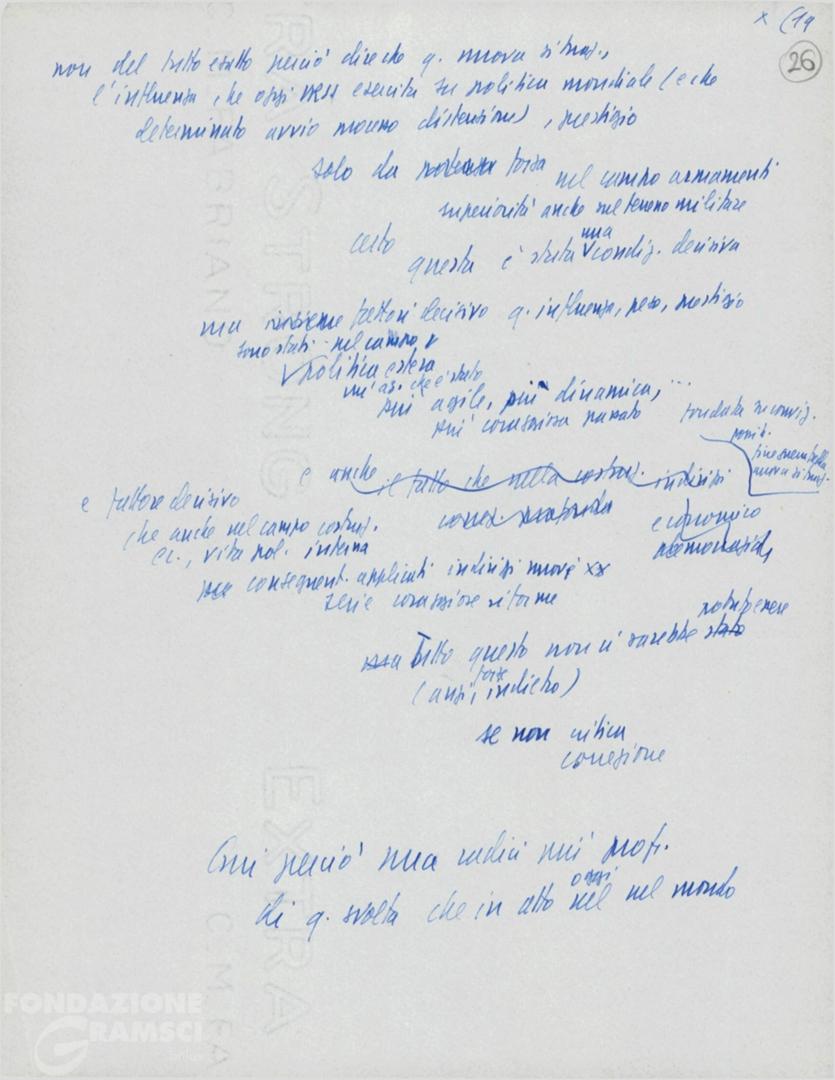 x (19
26
non del tutto esatto perciò dire che q. nuova situaz.,
l'influenza che oggi URSS esercita su politica mondiale (e che
determinato avvio processo distensione), prestigio
solo da forza
nel campo armamenti
superiorità anche sul terreno militare
certo
una
questa è stata condiz. decisiva
ma insieme fattori decisivo q. influenza, peso, prestigio
sono stati nel campo
politica estera
che è stata
più agile, più dinamica, ...
più coraggiosa
fondata su
posit.
nuova situaz.
e anche il fatto che nella costruz. indirizzi
economico
e fattore decisivo
che anche nel campo costruz.
ec., vita pol. interna
conseguent. applicati indirizzi nuovi xx
serie coraggiose riforme
potuto avere
ma Tutto questo non ci sarebbe stato
forse
(anzi, indietro)
se non critica
correzione
Qui perciò una radici più prof.
oggi
di q. svolta che in atto nel nel mondo
FONDAZIONE
GRAMSCI
onlus
FABRIANO
EXTRA STRONG
EXTRA
C.M. FA